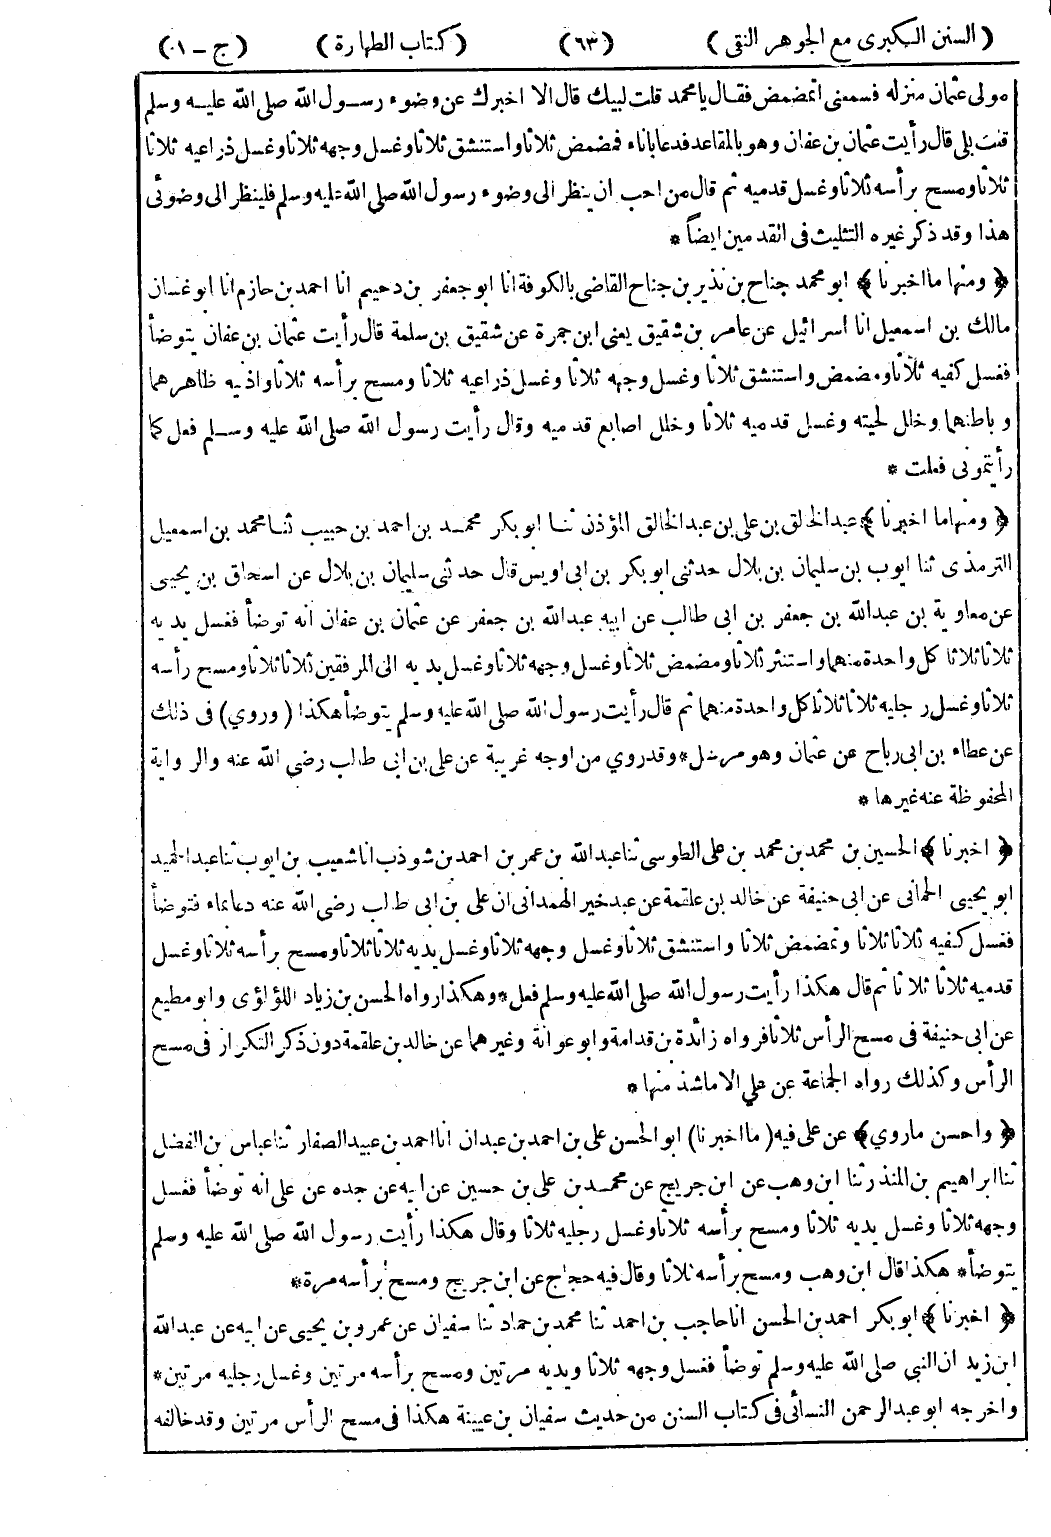 ( السنن الكبرى مع الجوهر النقى ) (٦٣) ( كتاب الطهارة ) ( ج – ٠١ )
مولى عثمان منزله فسمعنى اتمضمض فقال يا محمد قلت لبيك قال الا اخبرك عن وضوء رسول الله صلى الله عليه وسلم
قلت بلى قال رأيت عثمان بن عفان وهو بالمقاعد فدعا باناء فمضمض ثلاثا واستنشق ثلاثا وغسل وجهه ثلاثا وغسل ذراعيه ثلاثا
ثلاثا ومسح برأسه ثلاثا وغسل قدميه ثم قال من احب ان ينظر الى وضوء رسول الله صلى الله عليه وسلم فلينظر الى وضوئى
هذا وقد ذكر غيره التثليث فى القدمين ايضاً *
﴿ ومنها ما اخبرنا ﴾ ابو محمد جناح بن نذير بن جناح القاضى بالكوفة انا ابو جعفر بن دحيم انا احمد بن حازم انا ابو غسان
مالك بن اسمعيل انا اسرائيل عن عامر بن شقيق يعنى ابن جمرة عن شقيق بن سلمة قال رأيت عثمان بن عفان يتوضأ
فغسل كفيه ثلاثا ومضمض واستنشق ثلاثا وغسل وجهه ثلاثا وغسل ذراعيه ثلاثا ومسح برأسه ثلاثا واذنيه ظاهرهما
وباطنهما وخلل لحيته وغسل قدميه ثلاثا وخلل اصابع قدميه وقال رأيت رسول الله صلى الله عليه وسلم فعل كما
رأيتمونى فعلت *
﴿ ومنها ما اخبرنا ﴾ عبد الخالق بن على بن عبد الخالق المؤذن ثنا ابو بكر محمد بن احمد بن حبيب ثنا محمد بن اسمعيل
الترمذى ثنا ايوب بن سليمان بن بلال حدثنى ابو بكر بن ابى اويس قال حدثنى سليمان بن بلال عن اسحاق بن يحيى
عن معاوية بن عبد الله بن جعفر بن ابى طالب عن ابيه عبد الله بن جعفر عن عثمان بن عفان انه توضأ فغسل يديه
ثلاثا ثلاثا كل واحدة منهما واستنثر ثلاثا ومضمض ثلاثا وغسل وجهه ثلاثا وغسل يديه الى المرفقين ثلاثا ثلاثا ومسح رأسه
ثلاثا وغسل رجليه ثلاثا ثلاثا كل واحدة منهما ثم قال رأيت رسول الله صلى الله عليه وسلم يتوضأ هكذا ( وروي ) فى ذلك
عن عطاء بن ابى رباح عن عثمان وهو مرسل * وقد روي من اوجه غريبة عن على بن ابى طالب رضي الله عنه والرواية
المحفوظة عنه غيرها *
﴿ اخبرنا ﴾ الحسين بن محمد بن محمد بن على الطوسى ثنا عبد الله بن عمر بن احمد بن شوذب انا شعيب بن ايوب ثنا عبد الحميد
ابو يحيى الحمانى عن ابى حنيفة عن خالد بن علقمة عن عبد خير الهمدانى ان على بن ابى طالب رضى الله عنه دعا بماء فتوضأ
فغسل كفيه ثلاثا ثلاثا وتمضمض ثلاثا واستنشق ثلاثا وغسل وجهه ثلاثا وغسل يديه ثلاثا ثلاثا ومسح برأسه ثلاثا وغسل
قدميه ثلاثا ثلاثا ثم قال هكذا رأيت رسول الله صلى الله عليه وسلم فعل * وهكذا رواه الحسن بن زياد اللؤلؤى وابو مطيع
عن ابى حنيفة فى مسح الرأس ثلاثا فرواه زائدة بن قدامة وابو عوانة وغيرهما عن خالد بن علقمة دون ذكر التكرار فى مسح
الرأس وكذلك رواه الجماعة عن علي الا ما شذ منها *
﴿ واحسن ما روي ﴾ عن على فيه ( ما اخبرنا ) ابو الحسن على بن احمد بن عبدان انا احمد بن عبيد الصفار ثنا عباس بن الفضل
ثنا ابراهيم بن المنذر ثنا ابن وهب عن ابن جريج عن محمد بن على بن حسين عن ابيه عن جده عن على انه توضأ فغسل
وجهه ثلاثا وغسل يديه ثلاثا ومسح برأسه ثلاثا وغسل رجليه ثلاثا وقال هكذا رأيت رسول الله صلى الله عليه وسلم
يتوضأ * هكذا قال ابن وهب ومسح برأسه ثلاثا وقال فيه حجاج عن ابن جريج ومسح برأسه مرة *
﴿ اخبرنا ﴾ ابو بكر احمد بن الحسن انا حاجب بن احمد ثنا محمد بن حماد ثنا سفيان عن عمرو بن يحيى عن ابيه عن عبد الله
ابن زيد ان النبى صلى الله عليه وسلم توضأ فغسل وجهه ثلاثا ويديه مرتين ومسح برأسه مرتين وغسل رجليه مرتين *
واخرجه ابو عبد الرحمن النسائى فى كتاب السنن من حديث سفيان بن عيينة هكذا فى مسح الرأس مرتين وقد خالفه